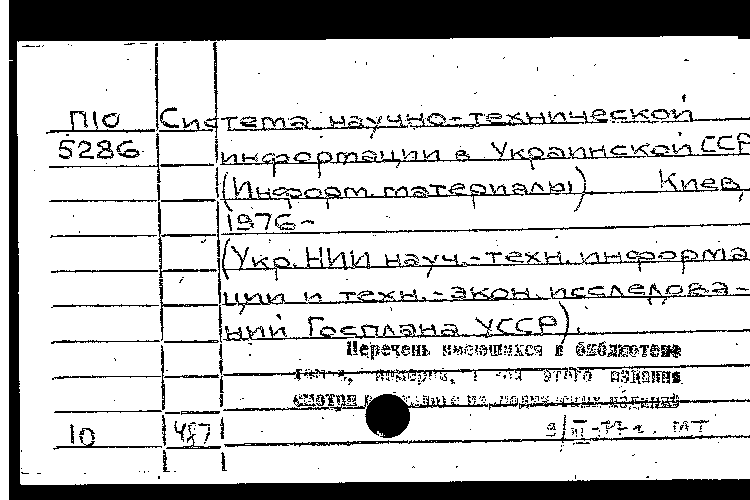 П10 Система научно-технической
5286 информации в Украинской ССР
(Информ. материалы). Киев,
1976-
(Укр. НИИ науч.-техн. информа
ции и техн.-экон. исследова-
ний Госплана УССР).
Перечень имеющихся в библиотеке
номеров, этого издания
смотри в изданий
10 487 9/III-77г. МТ